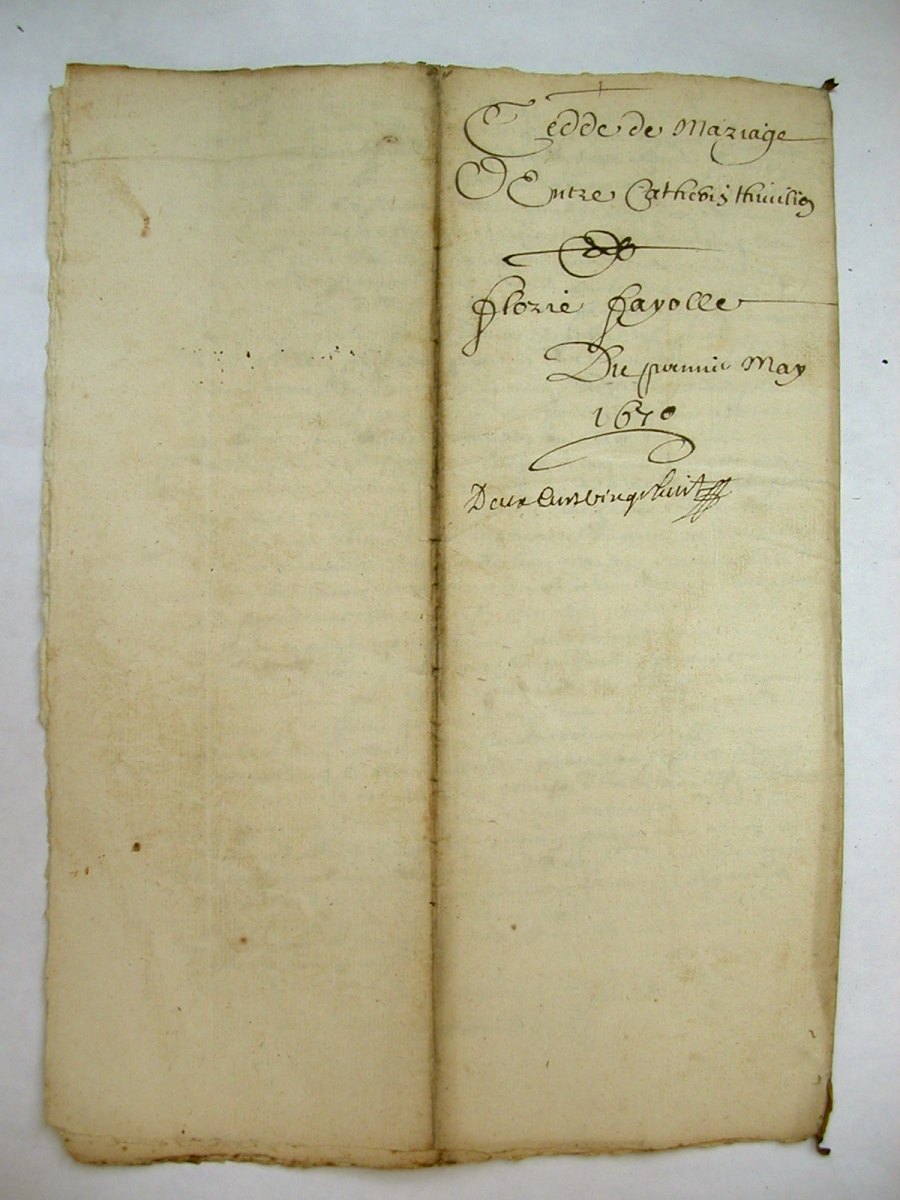 Cedde de Mariage
D Entre Cathevis
&
florie fayolle
Du premier May
1670
Deux Cens vingt huit